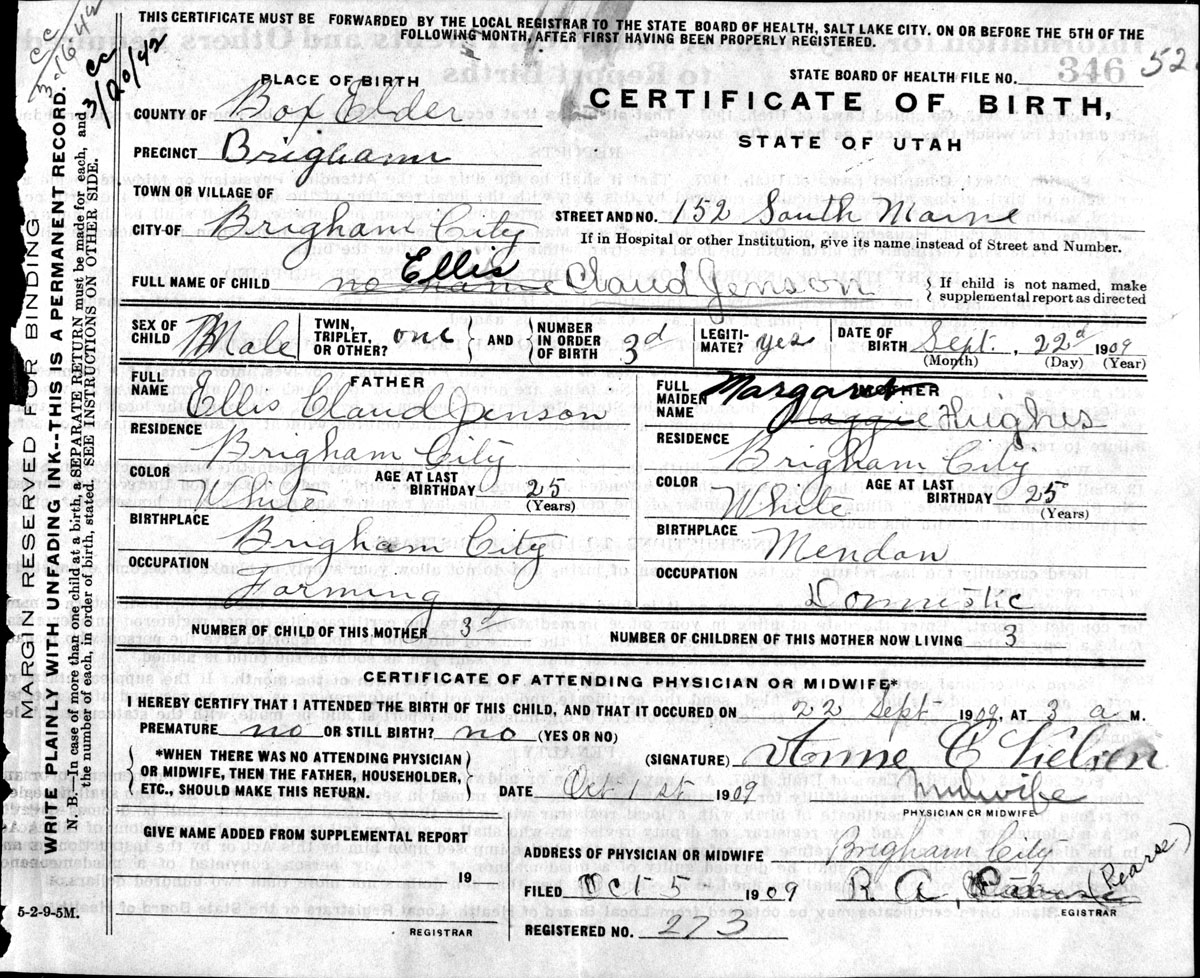 THIS CERTIFICATE MUST BE FORWARDED BY THE LOCAL REGISTRAR TO THE STATE BOARD OF HEALTH, SALT LAKE CITY. ON OR BEFORE THE 5TH OF THE
FOLLOWING MONTH, AFTER FIRST HAVING BEEN PROPERLY REGISTERED.
cc 3-16-42
cc 3/20/42
MARGIN RESERVED FOR BINDING
WRITE PLAINLY WITH UNFADING INK--THIS IS A PERMANENT RECORD.
N. B.--In case of more than one child at a birth, a SEPARATE RETURN must be made for each, and
the number of each, in order of birth, stated. SEE INSTRUCTIONS ON OTHER SIDE.
PLACE OF BIRTH
STATE BOARD OF HEALTH FILE NO. 346 52
COUNTY OF Box Elder
CERTIFICATE OF BIRTH,
STATE OF UTAH
PRECINCT Brigham
TOWN OR VILLAGE OF
CITY OF Brigham City STREET AND NO. 152 South Maine
If in Hospital or other Institution, give its name instead of Street and Number.
Ellis
FULL NAME OF CHILD no name Claud Jenson { If child is not named, make supplemental report as directed
SEX OF CHILD Male TWIN, TRIPLET, OR OTHER? one } AND { NUMBER IN ORDER OF BIRTH 3d LEGITIMATE? yes DATE OF BIRTH Sept. 22d 1909
(Month) (Day) (Year)
FATHER
FULL NAME Ellis Claud Jenson
RESIDENCE Brigham City
COLOR White AGE AT LAST BIRTHDAY 25
(Years)
BIRTHPLACE Brigham City
OCCUPATION Farming
MOTHER
FULL MAIDEN NAME Margaret Maggie Hughes
RESIDENCE Brigham City
COLOR White AGE AT LAST BIRTHDAY 25
(Years)
BIRTHPLACE Mendon
OCCUPATION Domistic
NUMBER OF CHILD OF THIS MOTHER 3d NUMBER OF CHILDREN OF THIS MOTHER NOW LIVING 3
CERTIFICATE OF ATTENDING PHYSICIAN OR MIDWIFE*
I HEREBY CERTIFY THAT I ATTENDED THE BIRTH OF THIS CHILD, AND THAT IT OCCURED ON 22 Sept 1909, AT 3 a M.
PREMATURE no OR STILL BIRTH? no (YES OR NO)
*WHEN THERE WAS NO ATTENDING PHYSICIAN
OR MIDWIFE, THEN THE FATHER, HOUSEHOLDER,
ETC., SHOULD MAKE THIS RETURN.
(SIGNATURE) Anne C
DATE Oct 1st 1909 Midwife
PHYSICIAN OR MIDWIFE
GIVE NAME ADDED FROM SUPPLEMENTAL REPORT
19
REGISTRAR
ADDRESS OF PHYSICIAN OR MIDWIFE Brigham City
FILED Oct 5 1909 R A, Pearse)
REGISTRAR
REGISTERED NO. 273
5-2-9-5M.